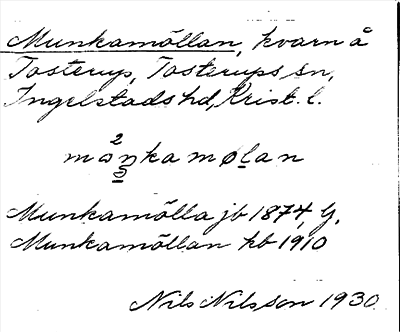 Munkamöllan, kvarn å
Tosterup, Tosterups sn,
Ingelstads hd, Krist. l.
Munkamölla jb 1874, G,
Munkamöllan kb 1910
Nils Nilsson 1930